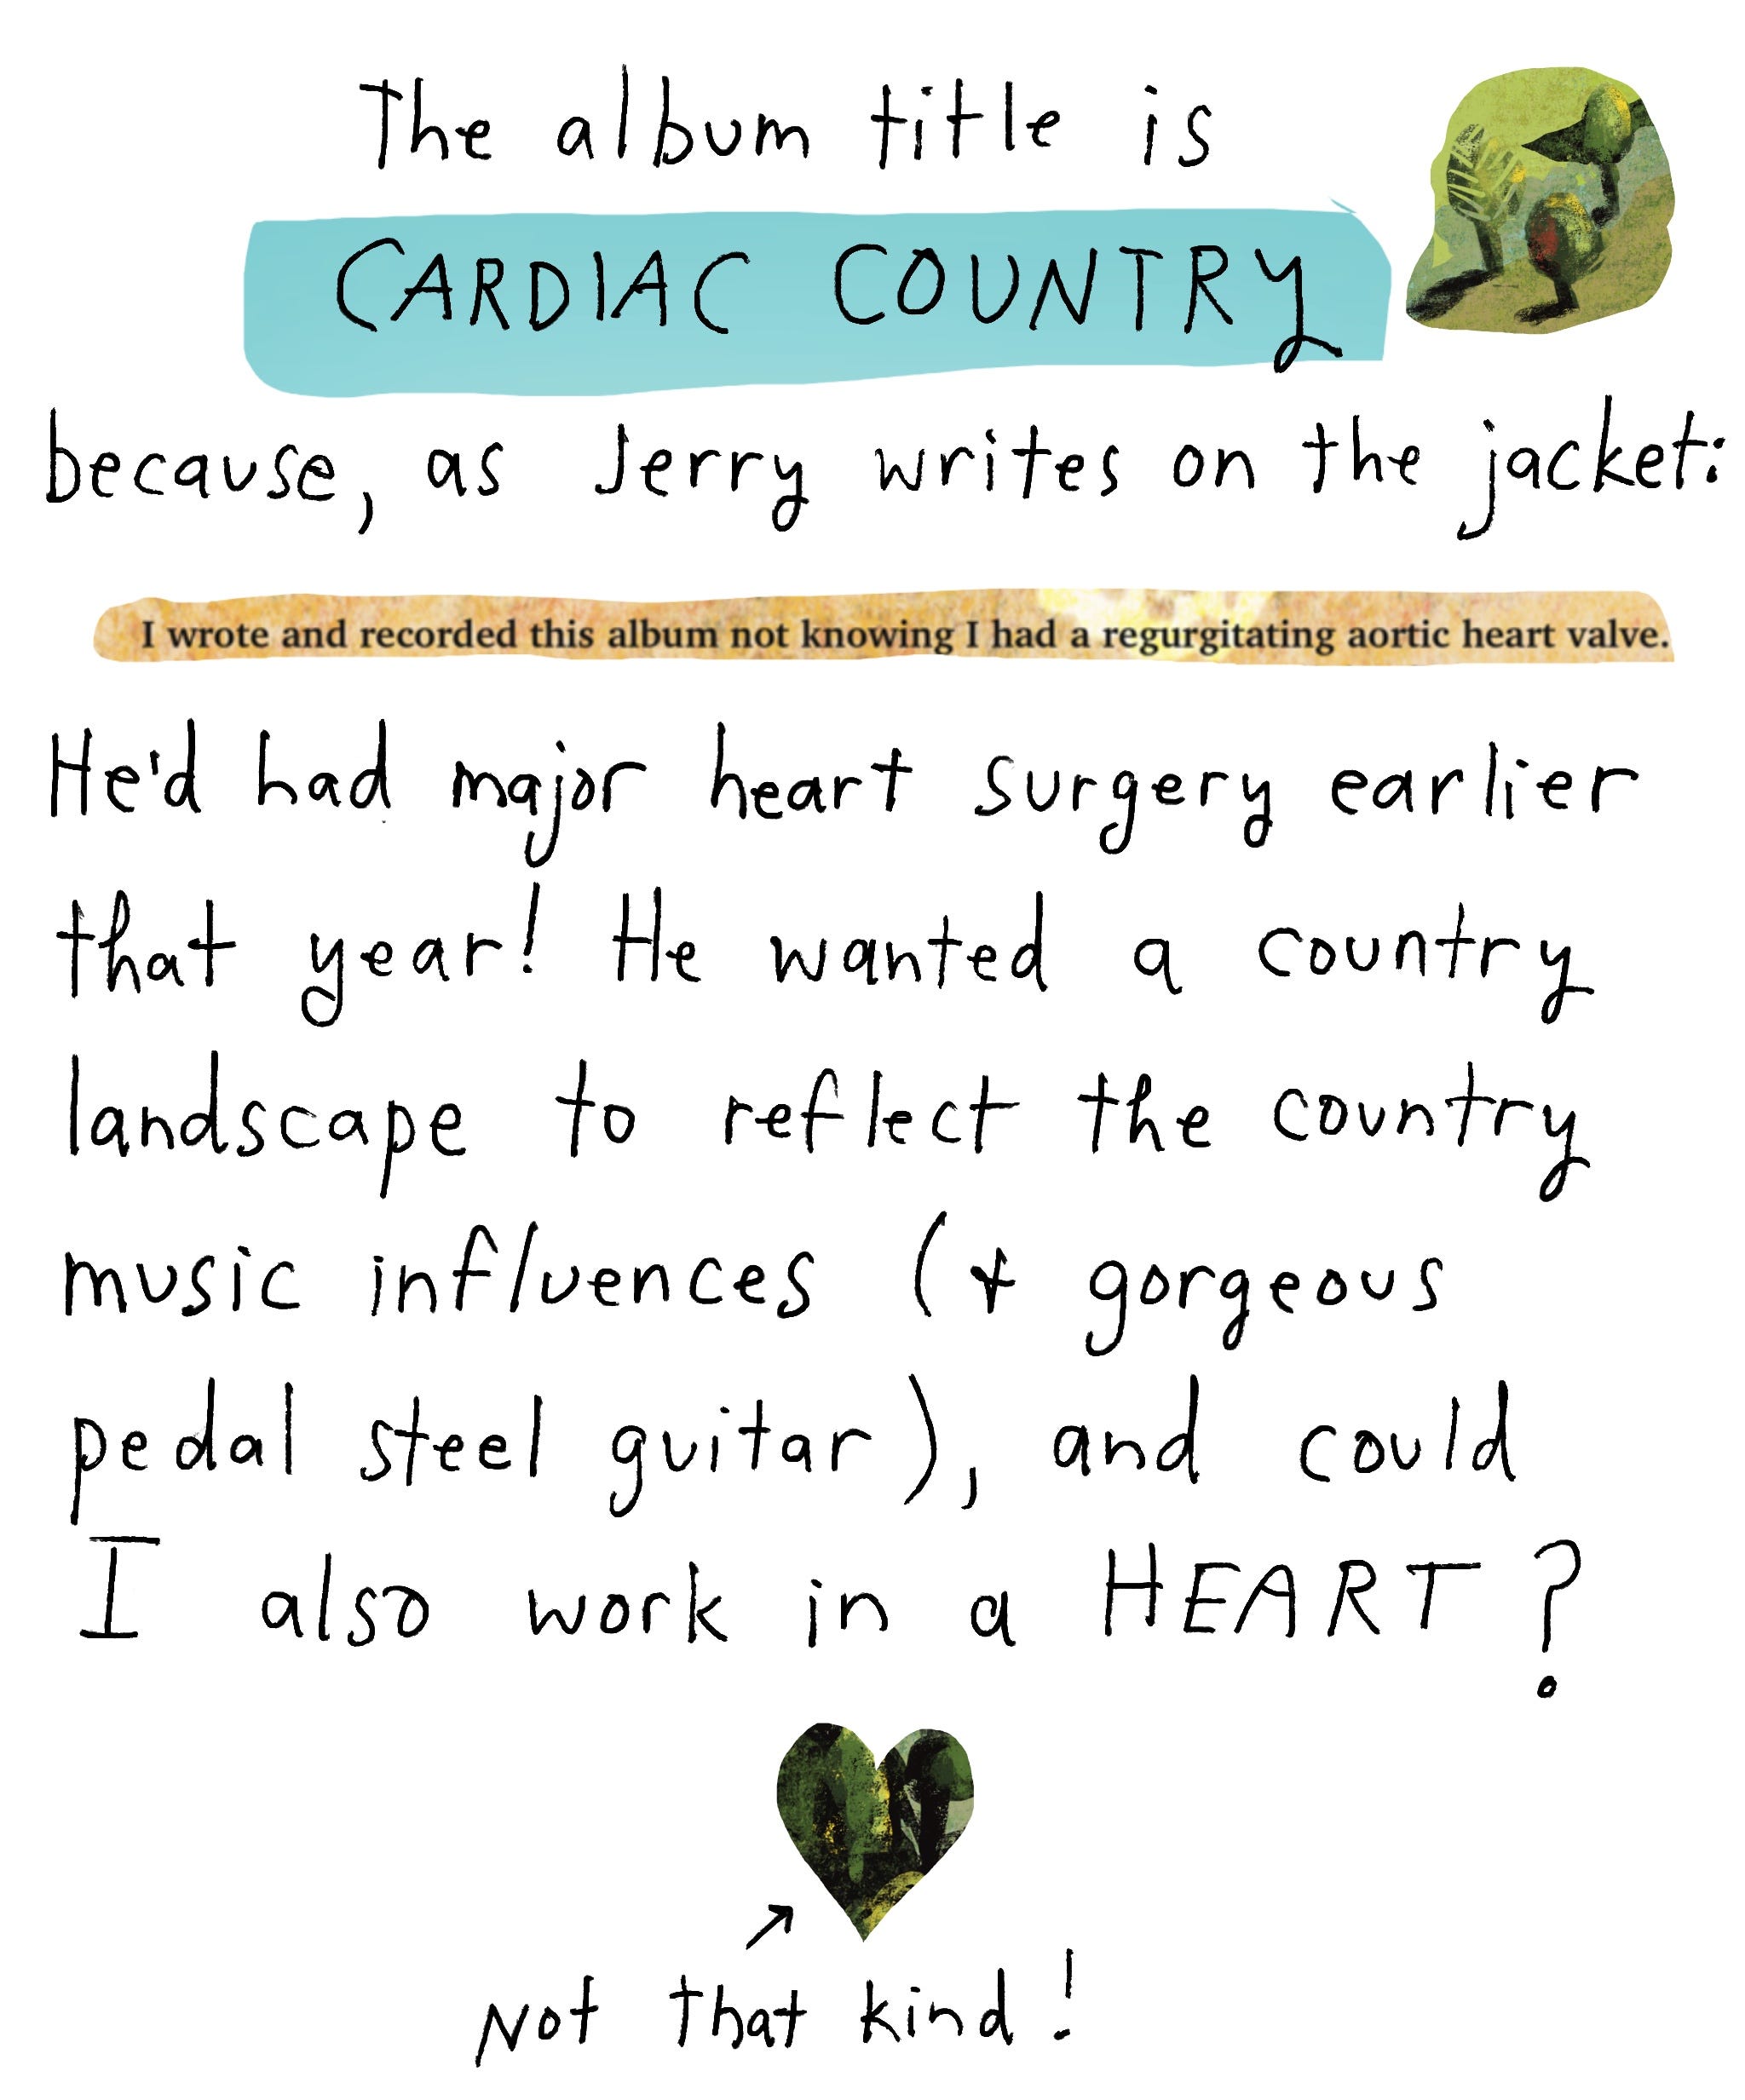 The album title is
CARDIAC COUNTRY
because, as Jerry writes on the jacket:
I wrote and recorded this album not knowing I had a regurgitating aortic heart valve.
He'd had major heart surgery earlier
that year! He wanted a country
landscape to reflect the country
music influences (& gorgeous
pedal steel guitar), and could
I also work in a HEART?
Not that kind!